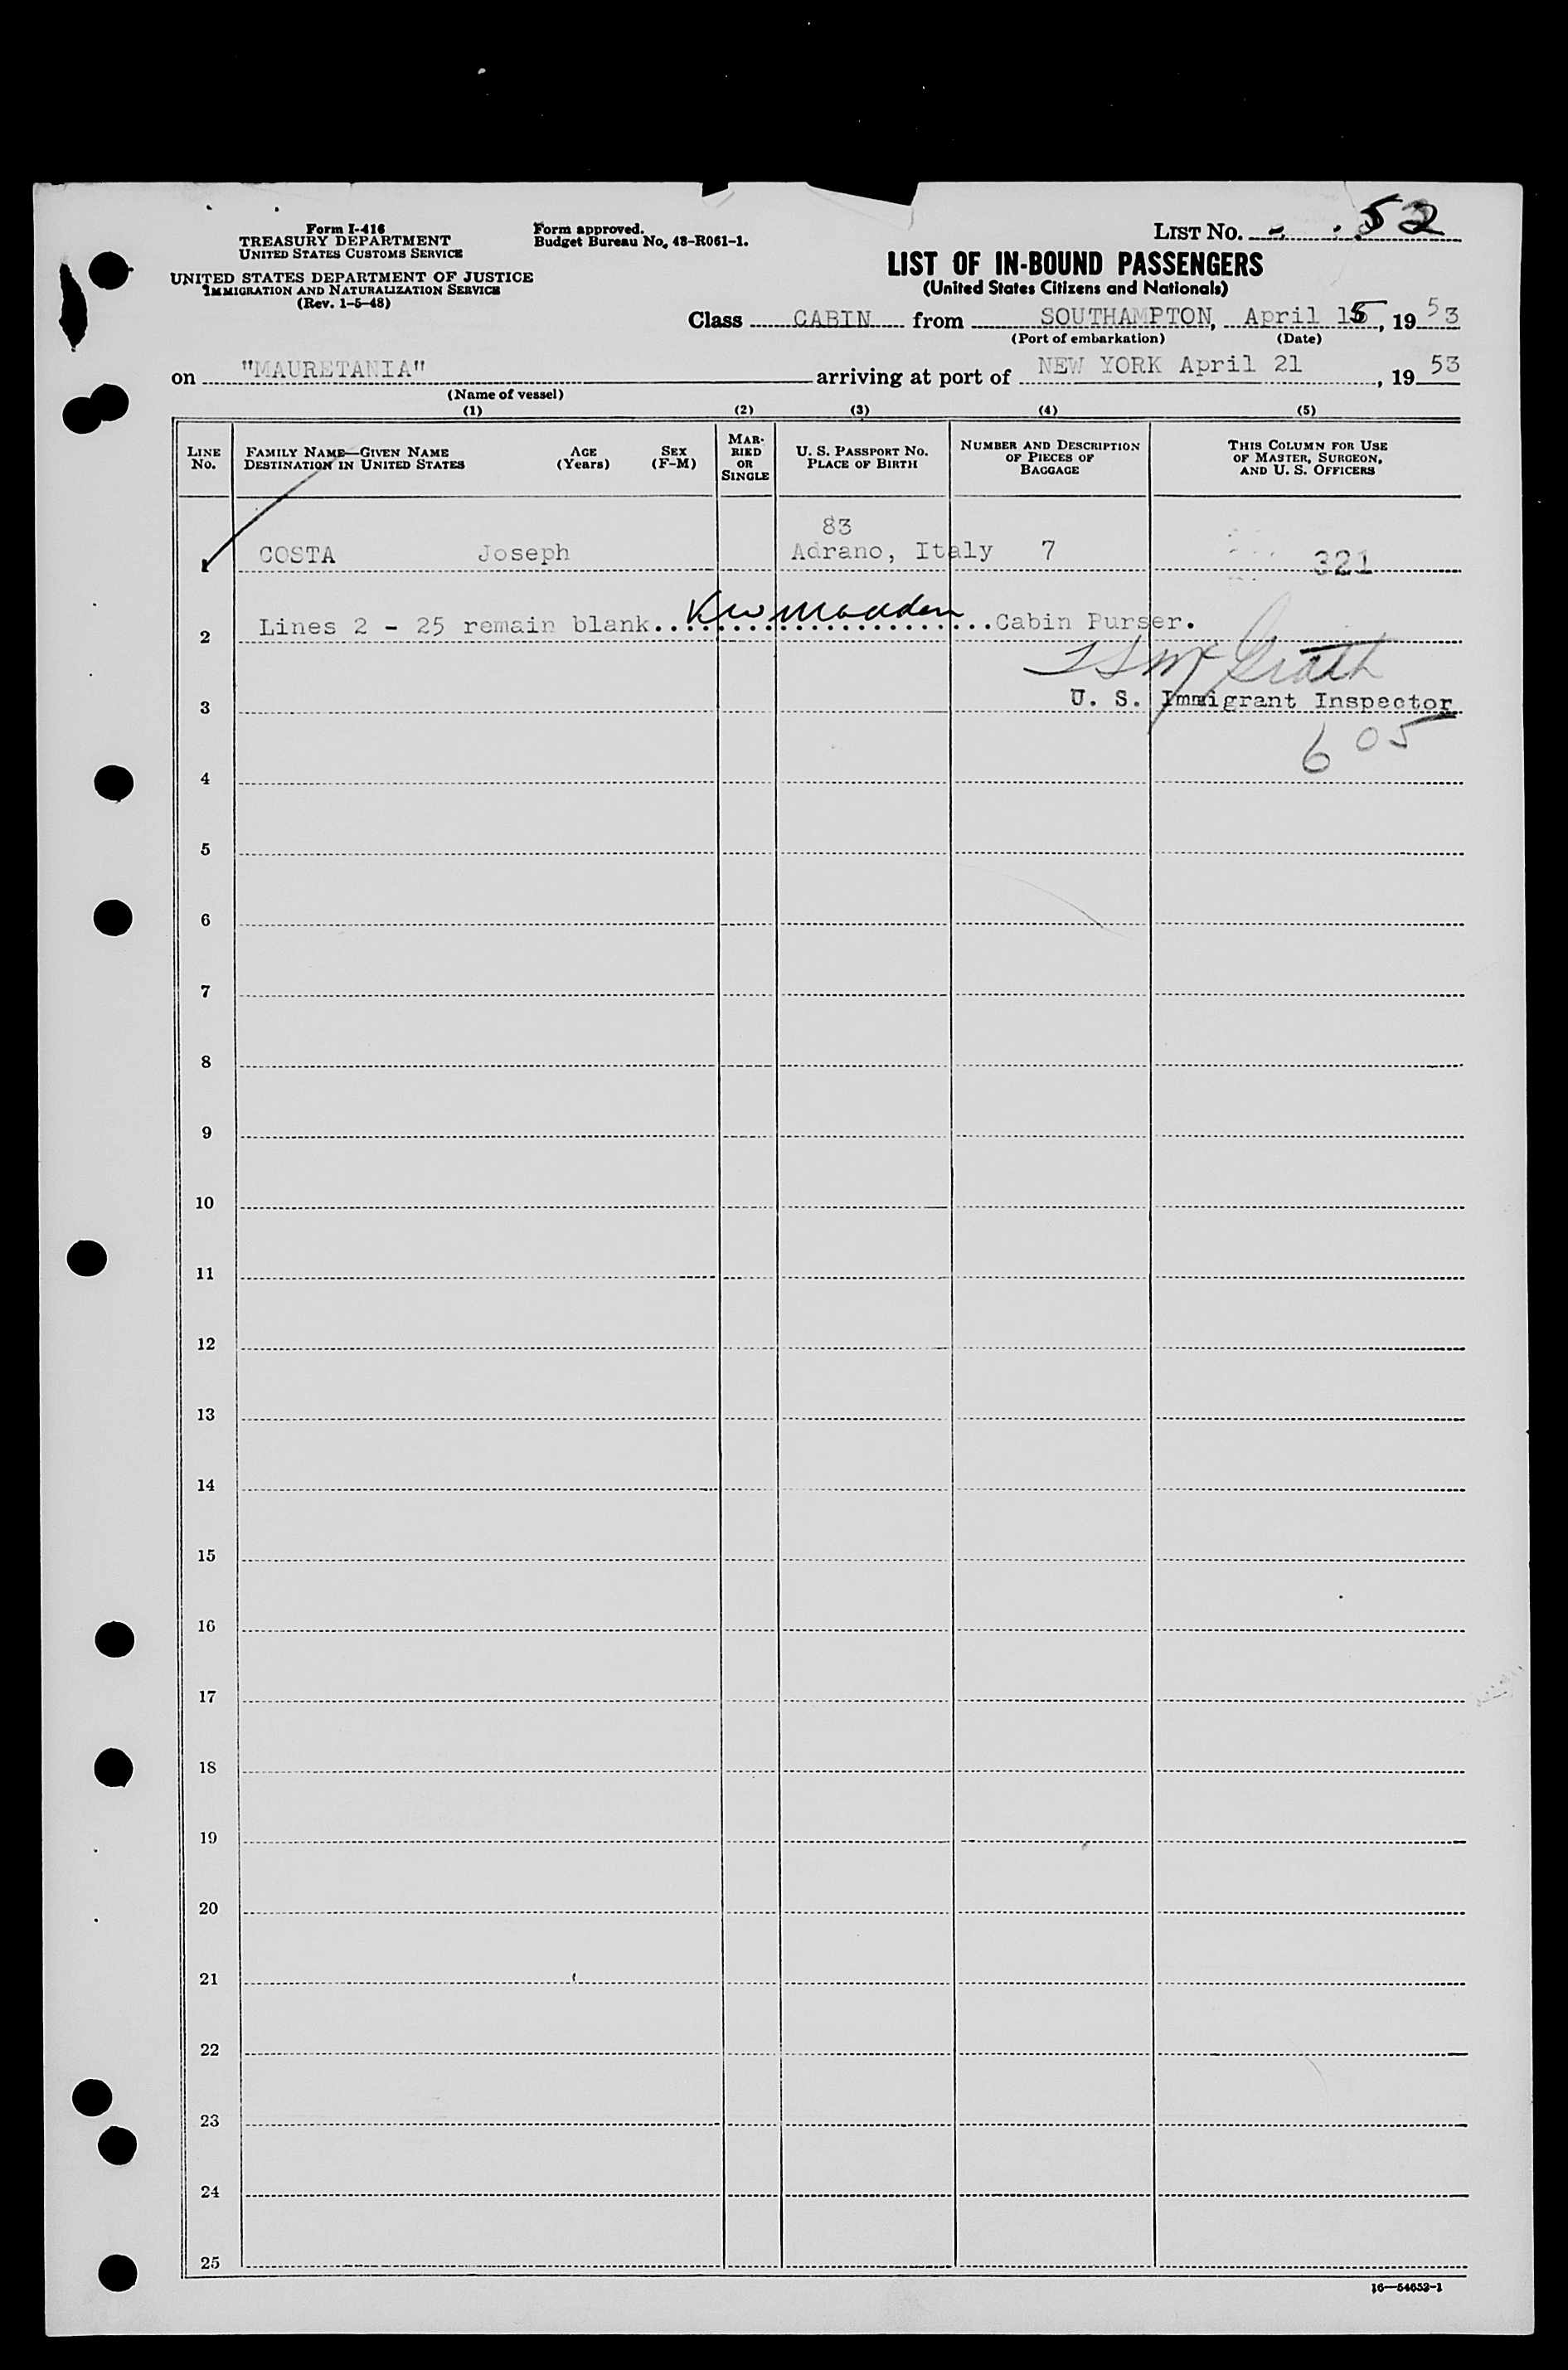 Form I-416
TREASURY DEPARTMENT
UNITED STATES CUSTOMS SERVICE
UNITED STATES DEPARTMENT OF JUSTICE
IMMIGRATION AND NATURALIZATION SERVICE
(Rev. 1-5-48)
Form approved.
Budget Bureau No. 43-R061-1.
LIST NO. 52
LIST OF IN-BOUND PASSENGERS
(United States Citizens and Nationals)
Class CABIN from SOUTHAMPTON, April 15, 1953
(Port of embarkation) (Date)
on "MAURETANIA" arriving at port of NEW YORK April 21, 1953
(Name of vessel)
(1) (2) (3) (4) (5)
LINE NO.
FAMILY NAME—GIVEN NAME AGE SEX
DESTINATION IN UNITED STATES (Years) (F-M)
MARRIED OR SINGLE
U. S. PASSPORT NO.
PLACE OF BIRTH
NUMBER AND DESCRIPTION
OF PIECES OF
BAGGAGE
THIS COLUMN FOR USE
OF MASTER, SURGEON,
AND U. S. OFFICERS
83
1 COSTA Joseph Adrano, Italy 7 321
2 Lines 2 - 25 remain blank.. KW Madden ...Cabin Purser.
McGrath
3 U. S. Immigrant Inspector
605
4
5
6
7
8
9
10
11
12
13
14
15
16
17
18
19
20
21
22
23
24
25
16—54652-1